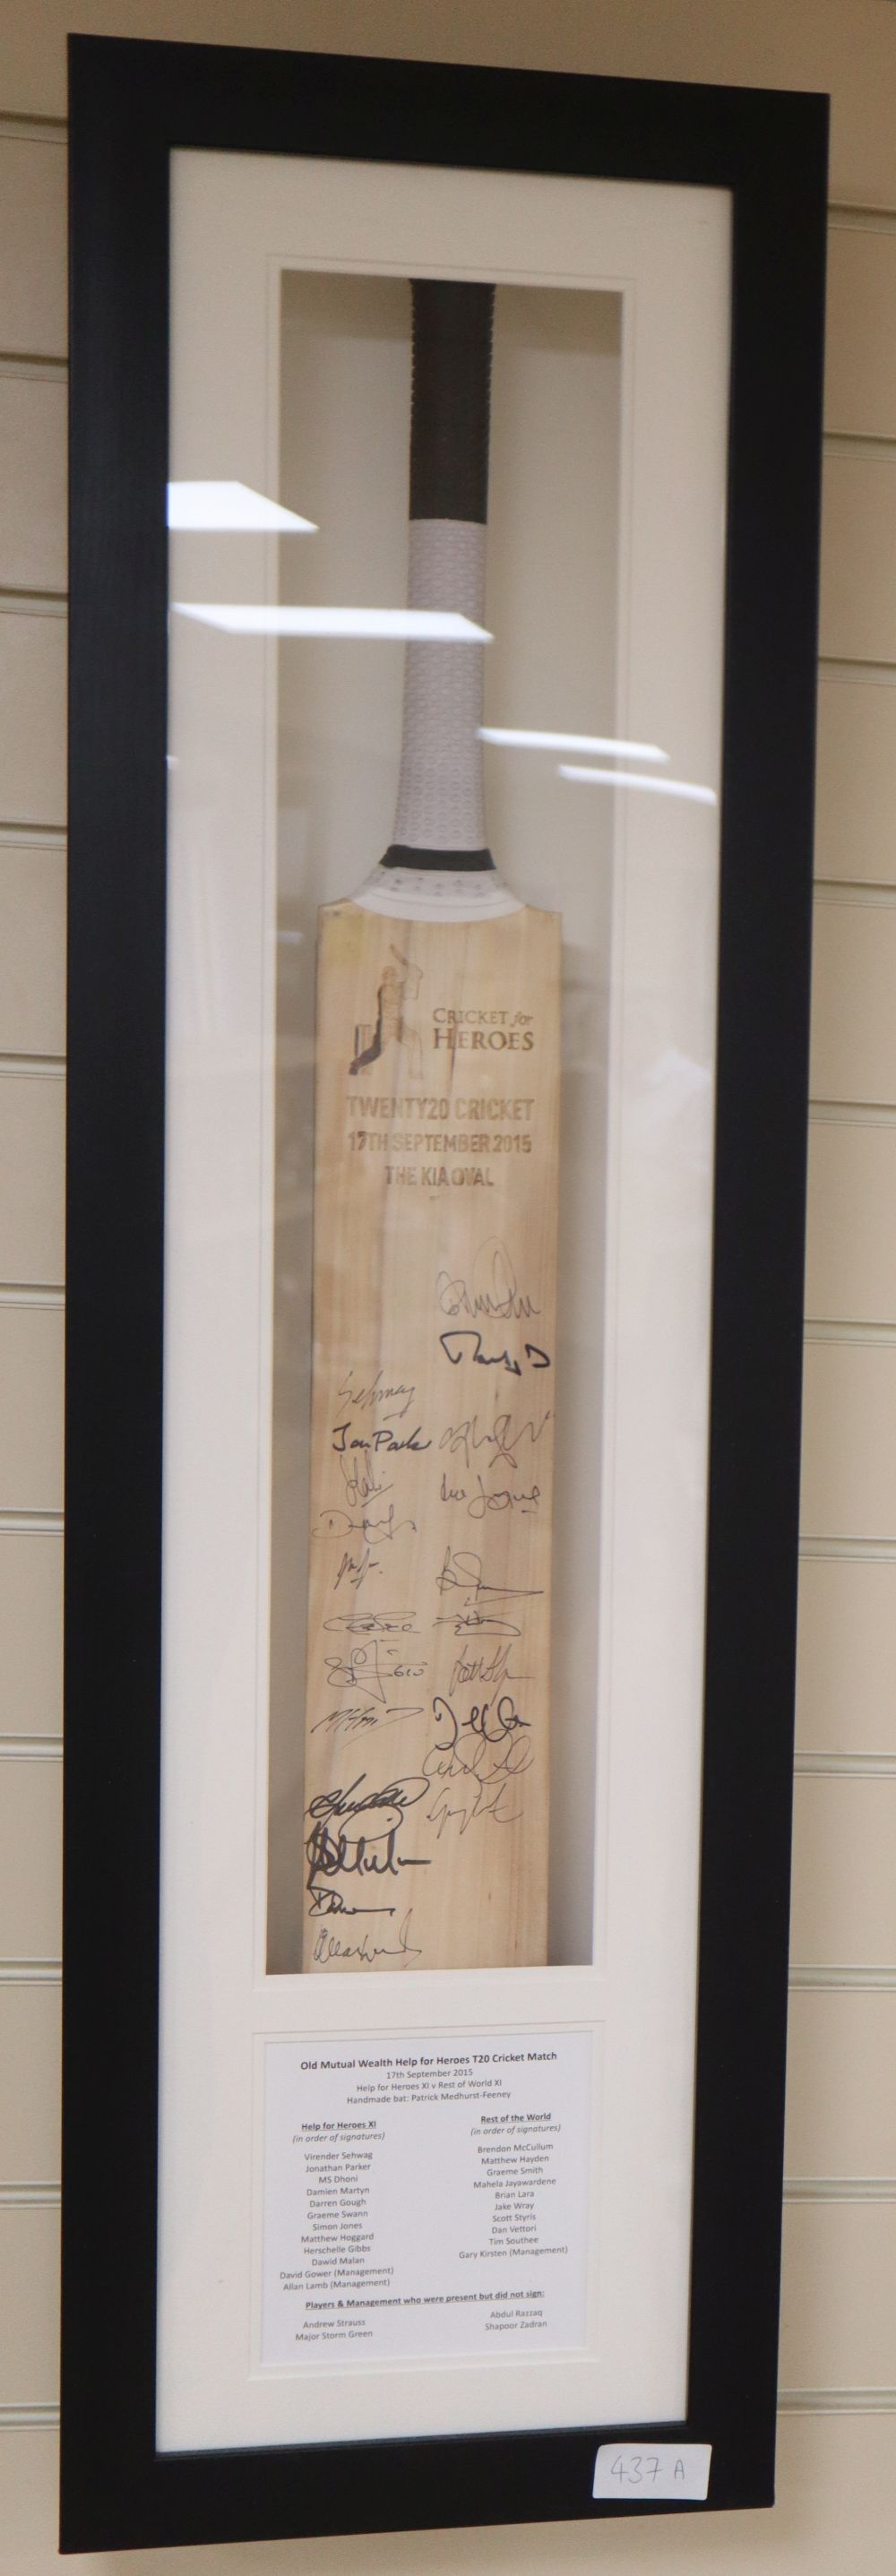 CRICKET for
HEROES
TWENTY20 CRICKET
17TH SEPTEMBER 2015
THE KIA OVAL
Old Mutual Wealth Help for Heroes T20 Cricket Match
17th September 2015
Help for Heroes XI v Rest of World XI
Handmade bat: Patrick Medhurst-Feeney
Help for Heroes XI
(in order of signatures)
Virender Sehwag
Jonathan Parker
MS Dhoni
Damien Martyn
Darren Gough
Graeme Swann
Simon Jones
Matthew Hoggard
Herschelle Gibbs
Dawid Malan
David Gower (Management)
Allan Lamb (Management)
Rest of the World
(in order of signatures)
Brendon McCullum
Matthew Hayden
Graeme Smith
Mahela Jayawardene
Brian Lara
Jake Wray
Scott Styris
Dan Vettori
Tim Southee
Gary Kirsten (Management)
Players & Management who were present but did not sign:
Andrew Strauss
Major Storm Green
Abdul Razzaq
Shapoor Zadran
437 A